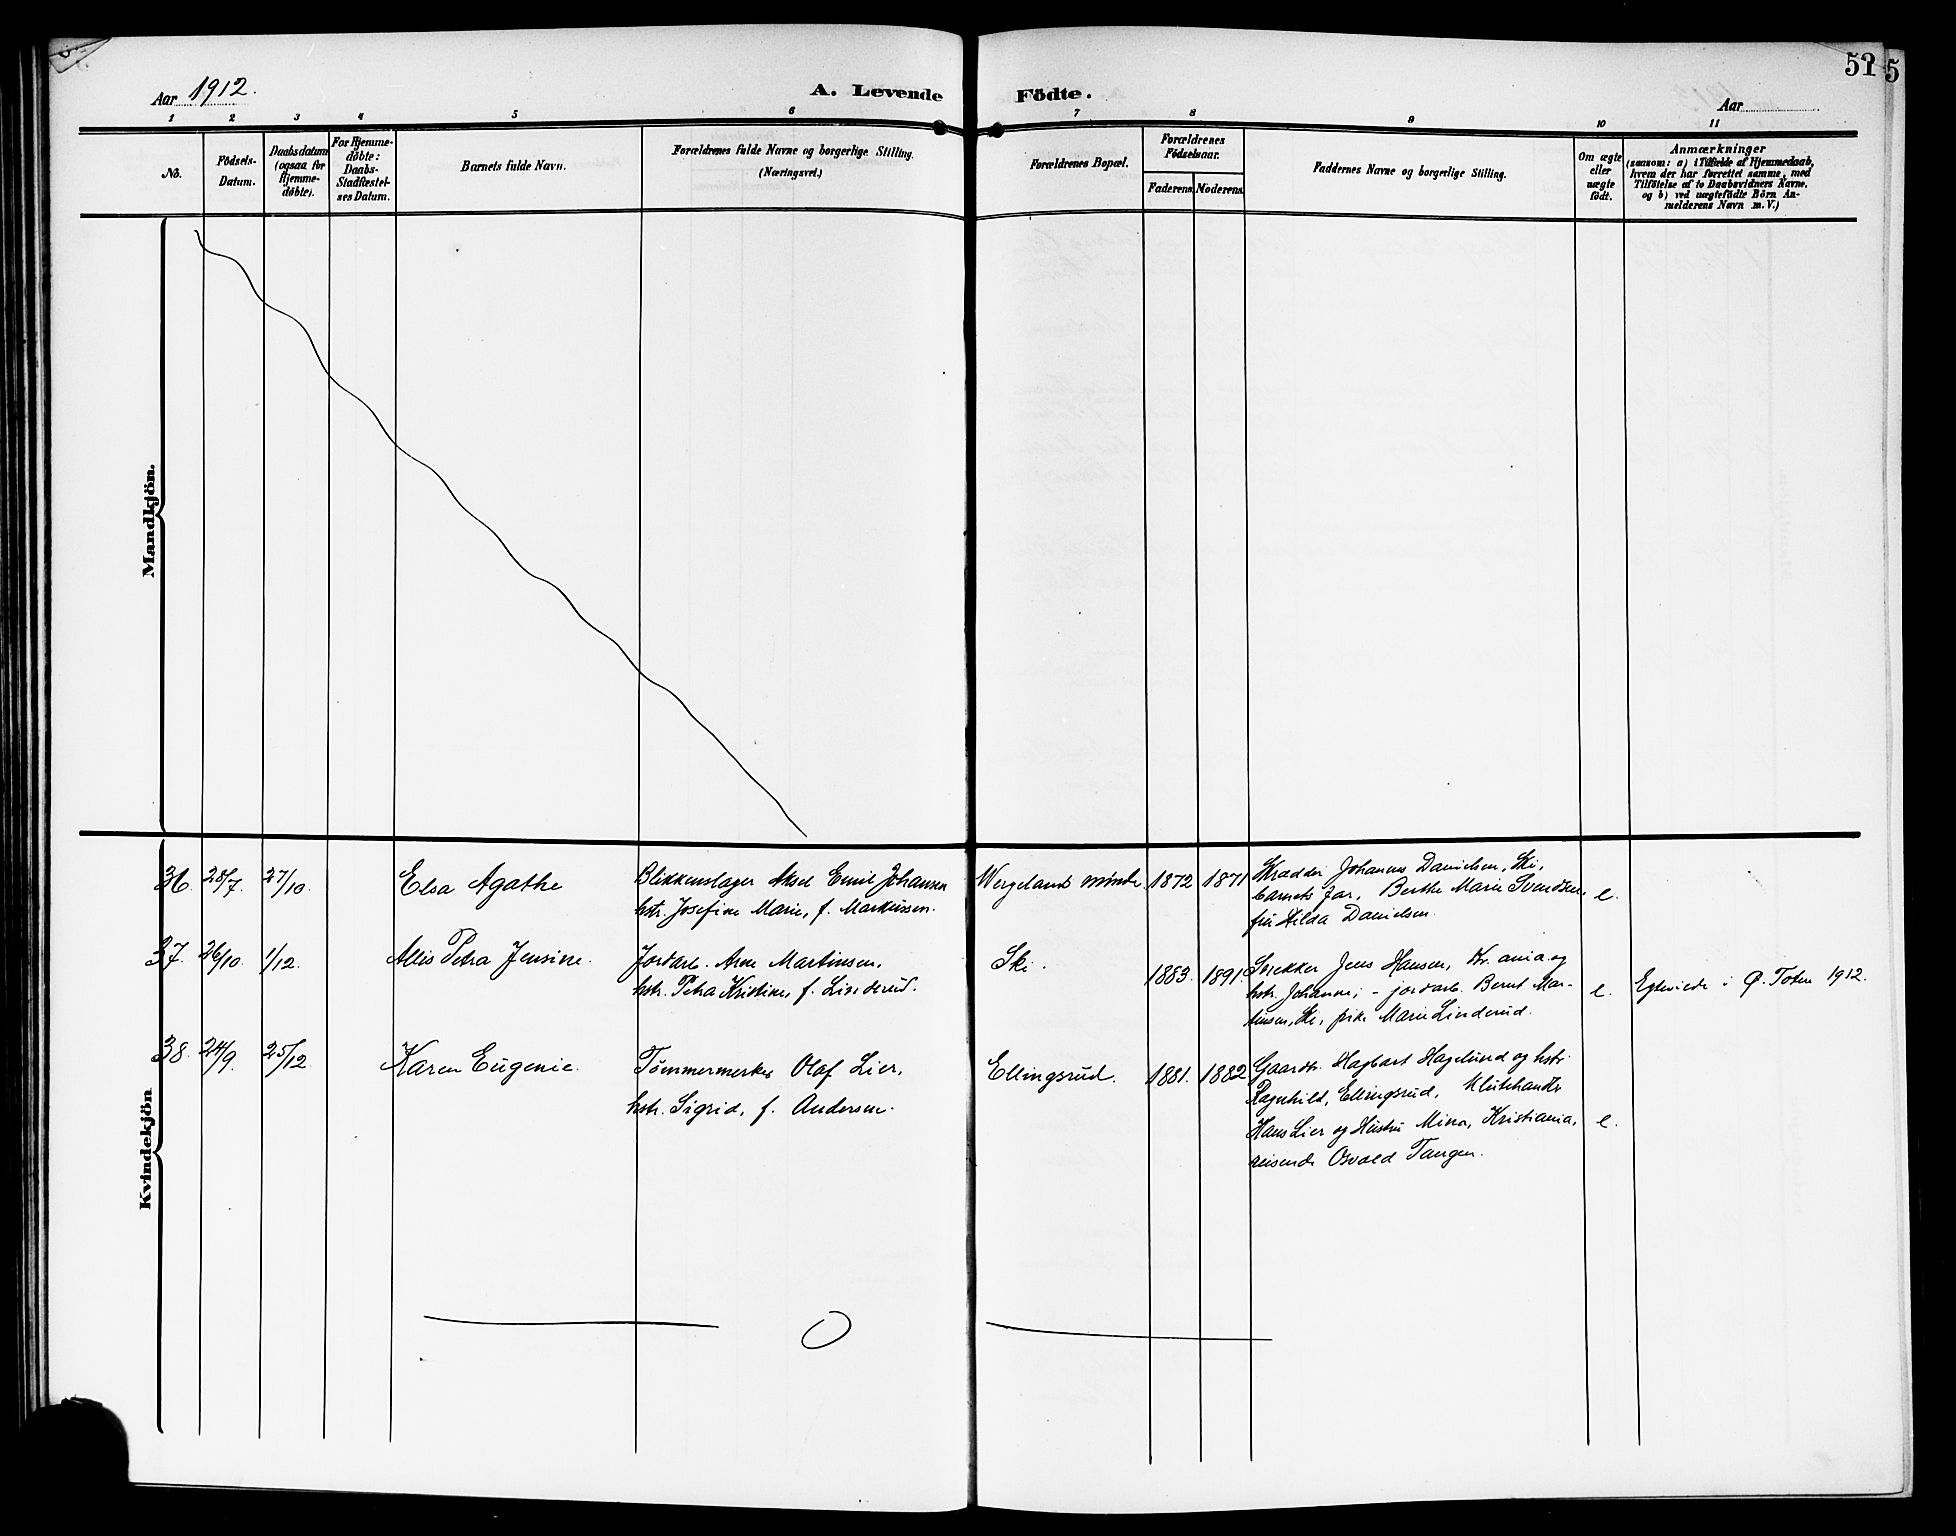 Aar 1912.
A. Levende Födte.
51
5
Aar
1 2 3 4 5 6 7 8 9 10 11
No.
Födsels-
Datum.
Daabsdatum
(ogsaa for
Hjemme-
döbte).
For Hjemme-
döbte:
Daabs-
Stadfæstel-
ses Datum.
Barnets fulde Navn.
Forældrenes fulde Navne og borgerlige Stilling.
(Næringsvei.)
Forældrenes Bopæl.
Forældrenes
Födselsaar.
Faderens. Moderens.
Faddernes Navne og borgerlige Stilling.
Om ægte
eller
uægte
födt.
Anmærkninger
(saasom: a) i Tilfælde af Hjemmedaab,
hvem der har forrettet samme, med
Tilföielse af to Daabsvidners Navne.
og b) ved uægtefödte Börn An-
melderens Navn m. V.)
Mandkjön.
Kvindekjön
36. 28/7. 27/10.
Elsa Agathe
Blikkenslager Aksel Emil Johansen
hstr. Josefine Marie, f. Markussen.
Wergelands minde
1872 1871
Skrædder Johannes Danielsen, Ski,
barnets far, Berthe Marie Svendsen,
fru Hilda Danielsen.
e.
37. 26/10. 1/12.
Allis Petra Jensine.
Jordarb. Arne Martinsen,
hstr. Petra Kristine, f. Linderud.
Ski.
1883. 1891.
Snekker Jens Hansen, Kr.ania og
hstr. Johanne; - jordarb. Bernt Mar-
tinsen, Ski, pike Marie Linderud.
e.
Egteviede i Ø. Toten 1912.
38. 24/9. 25/12.
Karen Eugenie.
Tømmermerker Olaf Lier,
hstr. Sigrid, f. Andersen.
Ellingsrud.
1881. 1882
Gaardbr. Hagbart Hagelund og hstr.
Ragnhild, Ellingsrud, Klutehandler
Hans Lier og Hustru Mina, Kristiania,
reisende Osvald Tangen.
e.